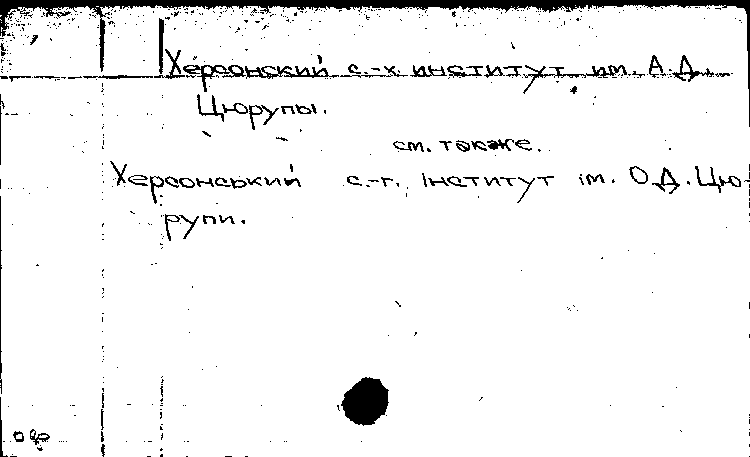 Херсонский с.-х. институт им. А.Д.
Цюрупы.
см. также.
Херсонський с.-г. інститут ім. О.Д. Цю-
рупи.